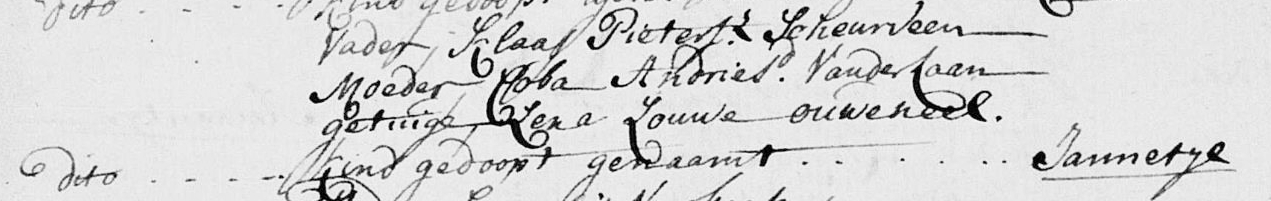 dito - - - - kind gedoopt
Vader, Klaas Pietersz. Scheurveen
Moeder Coba Andriesd. Vanderlaan
getuige, Lena Louwe ouweneel.
dito - - - - - kind gedoopt genaamt . . . . . . . Jannetye